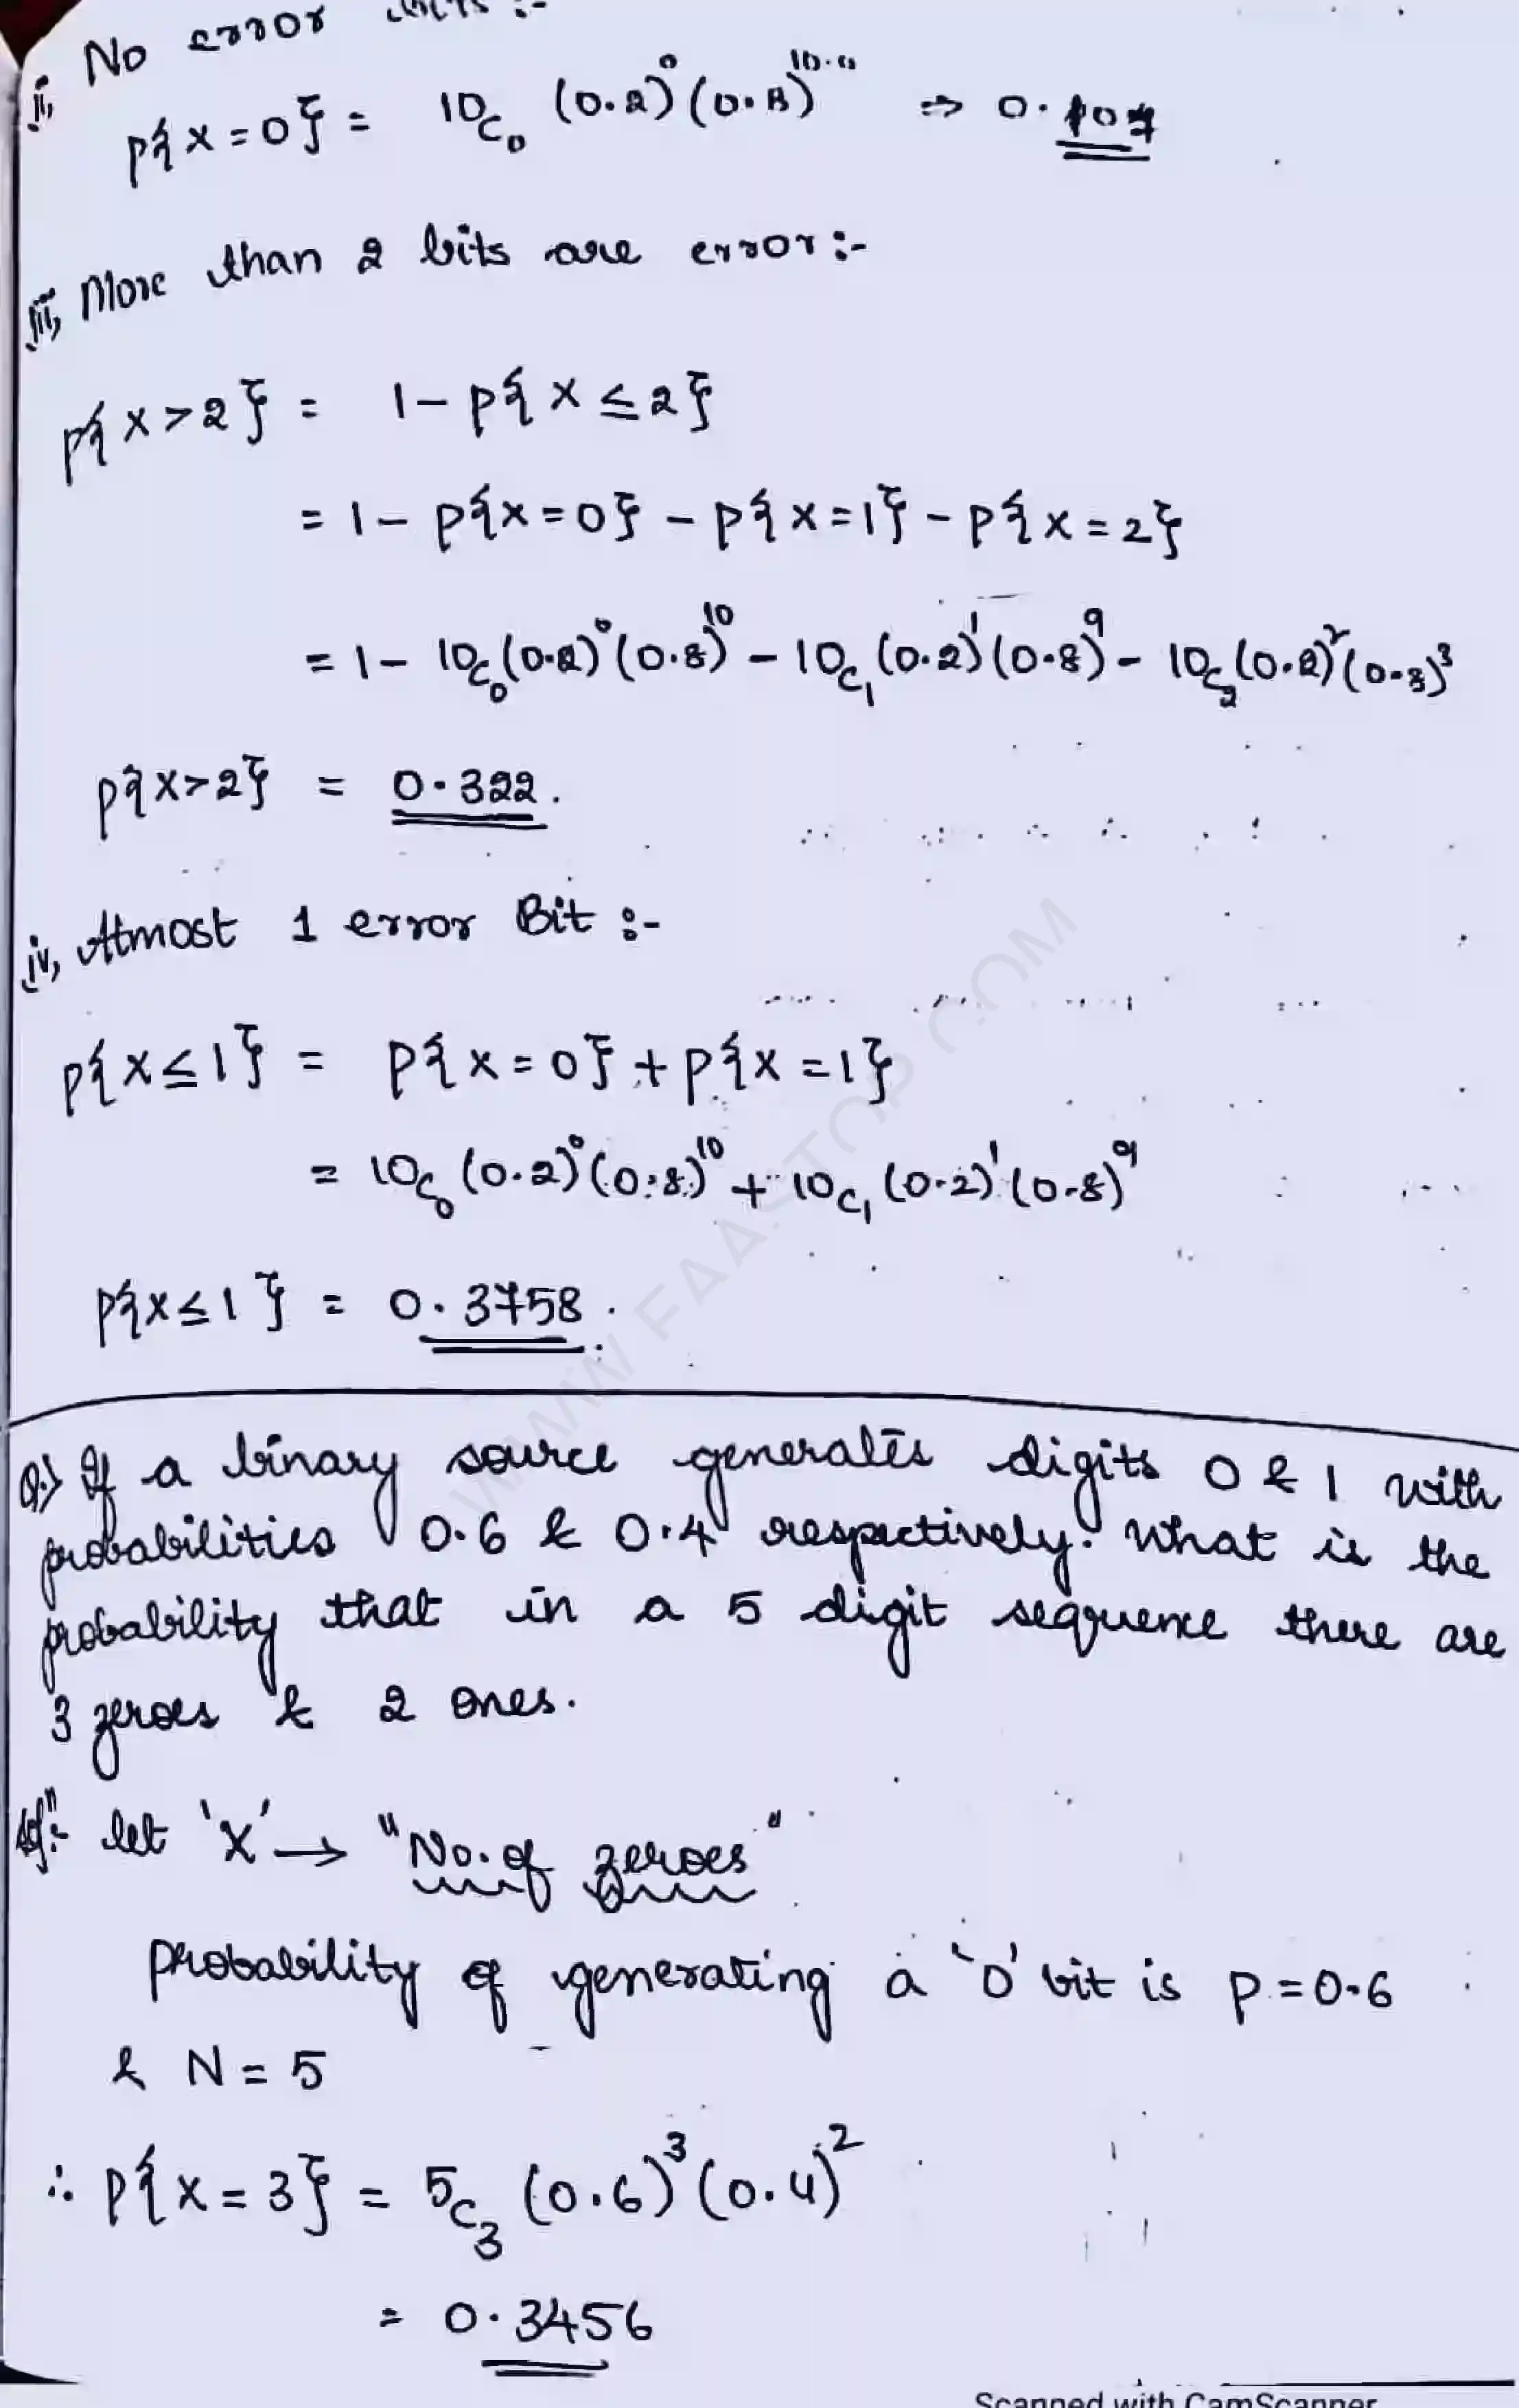 ii, No error bits :-
p{x=0} = 10C₀ (0.2)⁰ (0.8)¹⁰⁻⁰ ⇒ 0.107
iii, More than 2 bits are error :-
p{x>2} = 1 - p{x≤2}
= 1 - p{x=0} - p{x=1} - p{x=2}
= 1 - 10C₀ (0.2)⁰ (0.8)¹⁰ - 10C₁ (0.2)¹ (0.8)⁹ - 10C₂ (0.2)² (0.8)
p{x>2} = 0.322.
iv, Atmost 1 error Bit :-
p{x≤1} = p{x=0} + p{x=1}
= 10C₀ (0.2)⁰ (0.8)¹⁰ + 10C₁ (0.2)¹ (0.8)⁹
p{x≤1} = 0.3758.
Q.) If a binary source generates digits 0 & 1 with
probabilities 0.6 & 0.4 respectively. What is the
probability that in a 5 digit sequence there are
3 zeroes & 2 ones.
Solⁿ:- let 'x' → "No. of zeroes"
probability of generating a '0' bit is p = 0.6
& N = 5
∴ p{x=3} = 5C₃ (0.6)³ (0.4)²
= 0.3456
WWW.FAASTOP.COM
Scanned with CamScanner